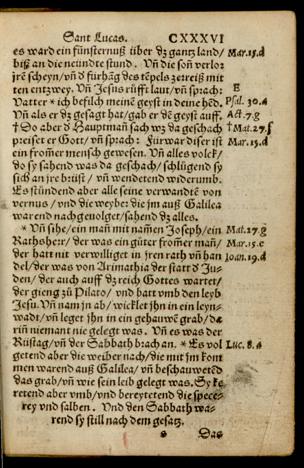 Sant Lucas. CXXXVI
es ward ein fünsternuß über dz gantz land/ Mar.15.d
biß an die neündte stund. Vñ die son verlor
jrē scheyn/vñ d fürhāg des tēpels zetreiß mit
ten entzwey. Vñ Jesus růfft laut/vñ sprach: E
Vatter * ich befilch meinē geyst in deine hēd. Psal.30.a
Vñ als er dz gesagt hat/gab er dē geyst auff. Act.7.g
† Do aber d Hauptmañ sach wz da geschach † Mat.27.f
preiset er Gott/vñ sprach: Fürwar diser ist Mar.15.d
ein fromer mensch gewesen. Vñ alles volck/
do sy sahend was da geschach/schlůgend sy
sich an jre brüst/ vñ wendetend widerumb.
Es stündend aber alle seine verwandtē von
vernus/vnd die weybe: die jm auß Galilea
warend nachgevolget/sahend dz alles.
* Vñ sihe/ein mañ mit namen Joseph/ein Mat.27.g
Rathsherr/der was ein gůter fromer mañ/ Mar.15.e
der hatt nit verwilliget in jren rath vñ han Joan.19.d
del/der was von Arimathia der statt d Ju-
den/der auch auff dz reich Gottes wartet/
der gieng zů Pilato/ vnd batt vmb den leyb
Jesu. Vñ nam jn ab/wicklet jhn in ein leyn-
wadt/vñ leget jhn in ein gehauwē grab/da
rin niemant nie gelegt was. Vñ es was der
Rüstag/vñ der Sabbath brach an. * Es vol Luc.8.a
getend aber die weiber nach/die mit jm kom
men warend auß Galilea/ vñ beschauwetēd
das grab/vñ wie sein leib gelegt was. Sy ke
retend aber vmb/vnd bereytetend die spece-
rey vnd salben. Vnd den Sabbath wa-
rend sy still nach dem gesatz.
s Das